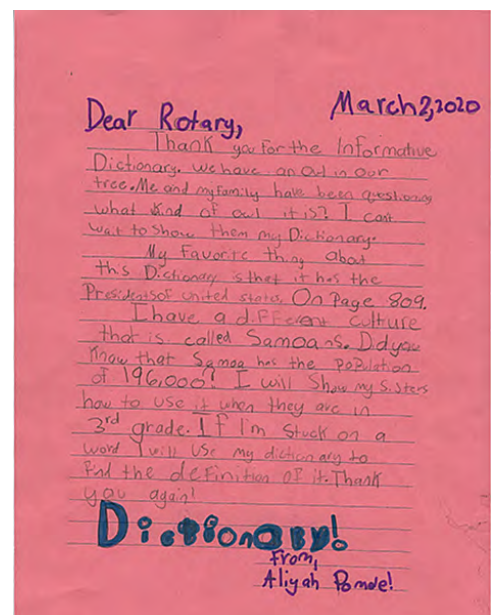 March 2, 2020
Dear Rotary,
Thank you for the Informative
Dictionary. We have an Owl in our
tree. Me and my family have been questioning
what kind of owl it is? I cant
wait to show them my Dictionary.
My Favorite thing about
this Dictionary is that it has the
Presidents of united states. On Page 809.
I have a different culture
that is called Samoans. Did you
Know that Samoa has the population
of 196,000! I will show my sisters
how to use it when they are in
3rd grade. If I'm stuck on a
word I will use my dictionary to
find the definition of it. Thank
you again!
Dictionary!
From,
Aliyah